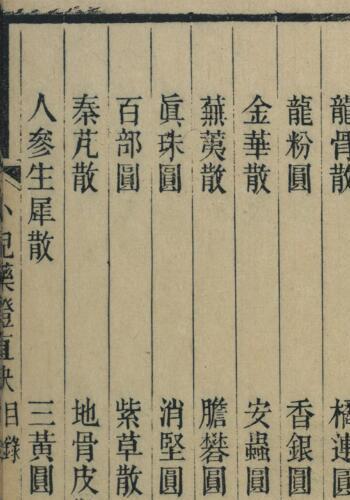 龍骨散　橘連圓
龍粉圓　香銀圓
金華散　安蟲圓
蕪荑散　膽礬圓
眞珠圓　消堅圓
百部圓　紫草散
秦艽散　地骨皮
人參生犀散　三黃圓
小兒藥證直訣目錄